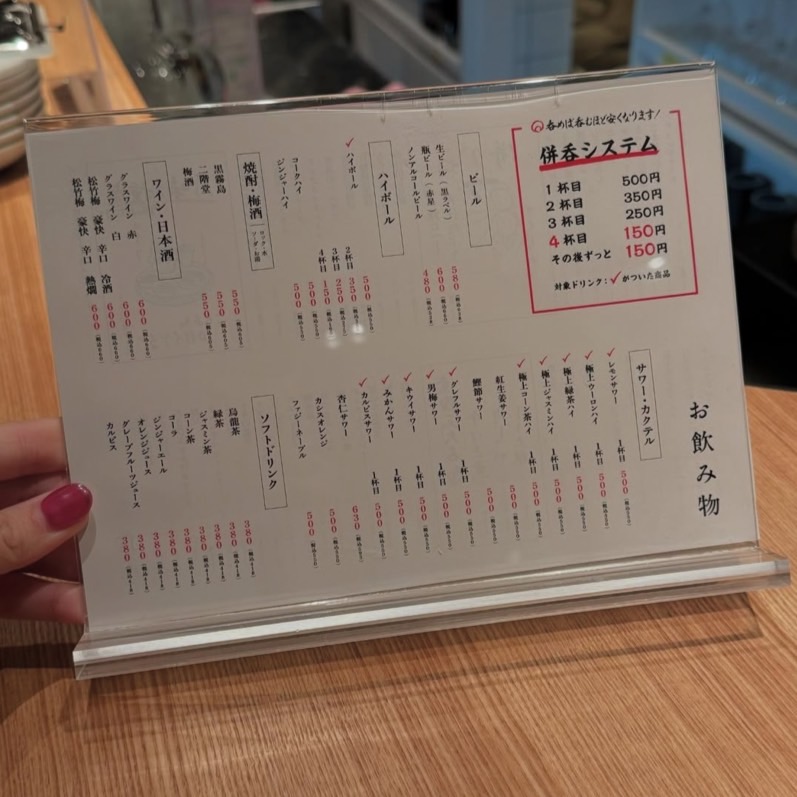 お飲み物
呑めば呑むほど安くなります!
併呑システム
1杯目 500円
2杯目 350円
3杯目 250円
4杯目 150円
その後ずっと 150円
対象ドリンク:✓がついた商品
ビール
生ビール(黒ラベル) 580
瓶ビール(赤星) 600
ノンアルコールビール 480
ハイボール
✓ハイボール 500
2杯目 350
3杯目 250
4杯目 150
コークハイ 500
ジンジャーハイ 500
焼酎・梅酒
黒霧島 550
二階堂 550
梅酒 550
ワイン・日本酒
グラスワイン 赤 600
グラスワイン 白 600
松竹梅 豪快 辛口 冷酒 600
松竹梅 豪快 辛口 熱燗 600
サワー・カクテル
✓レモンサワー 1杯目 500
✓極上ウーロンハイ 1杯目 500
✓極上緑茶ハイ 1杯目 500
✓極上ジャスミンハイ 1杯目 500
✓極上コーン茶ハイ 1杯目 500
紅生姜サワー 500
鰹節サワー 500
✓グレフルサワー 1杯目 500
✓男梅サワー 1杯目 500
✓キウイサワー 1杯目 500
✓みかんサワー 1杯目 500
✓カルピスサワー 1杯目 500
杏仁サワー 630
カシスオレンジ 500
ファジーネーブル 500
ソフトドリンク
烏龍茶 380
緑茶 380
ジャスミン茶 380
コーン茶 380
コーラ 380
ジンジャーエール 380
オレンジジュース 380
グレープフルーツジュース 380
カルピス 380